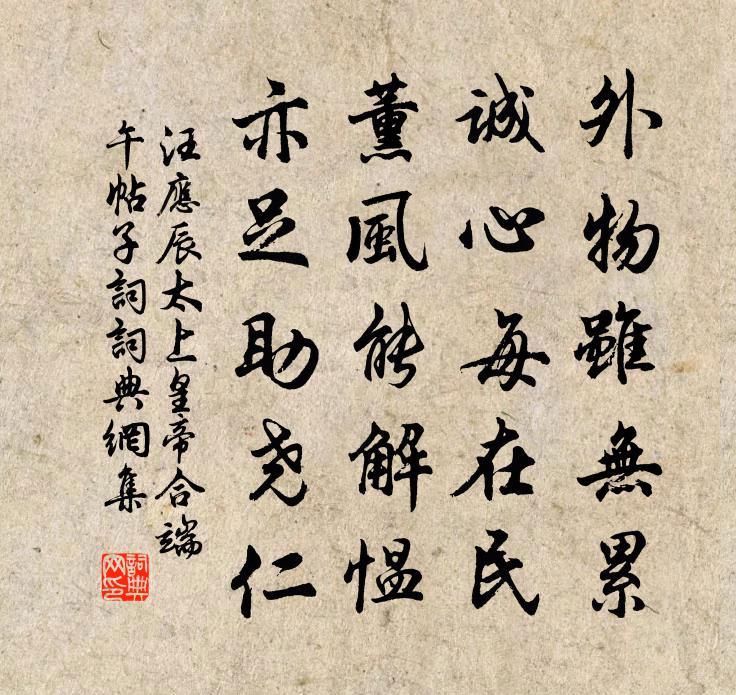 外物雖無累
誠心每在民
薰風能解愠
亦足助尧仁
汪應辰太上皇帝合端
午帖子詞詞典網集
詞典
网印